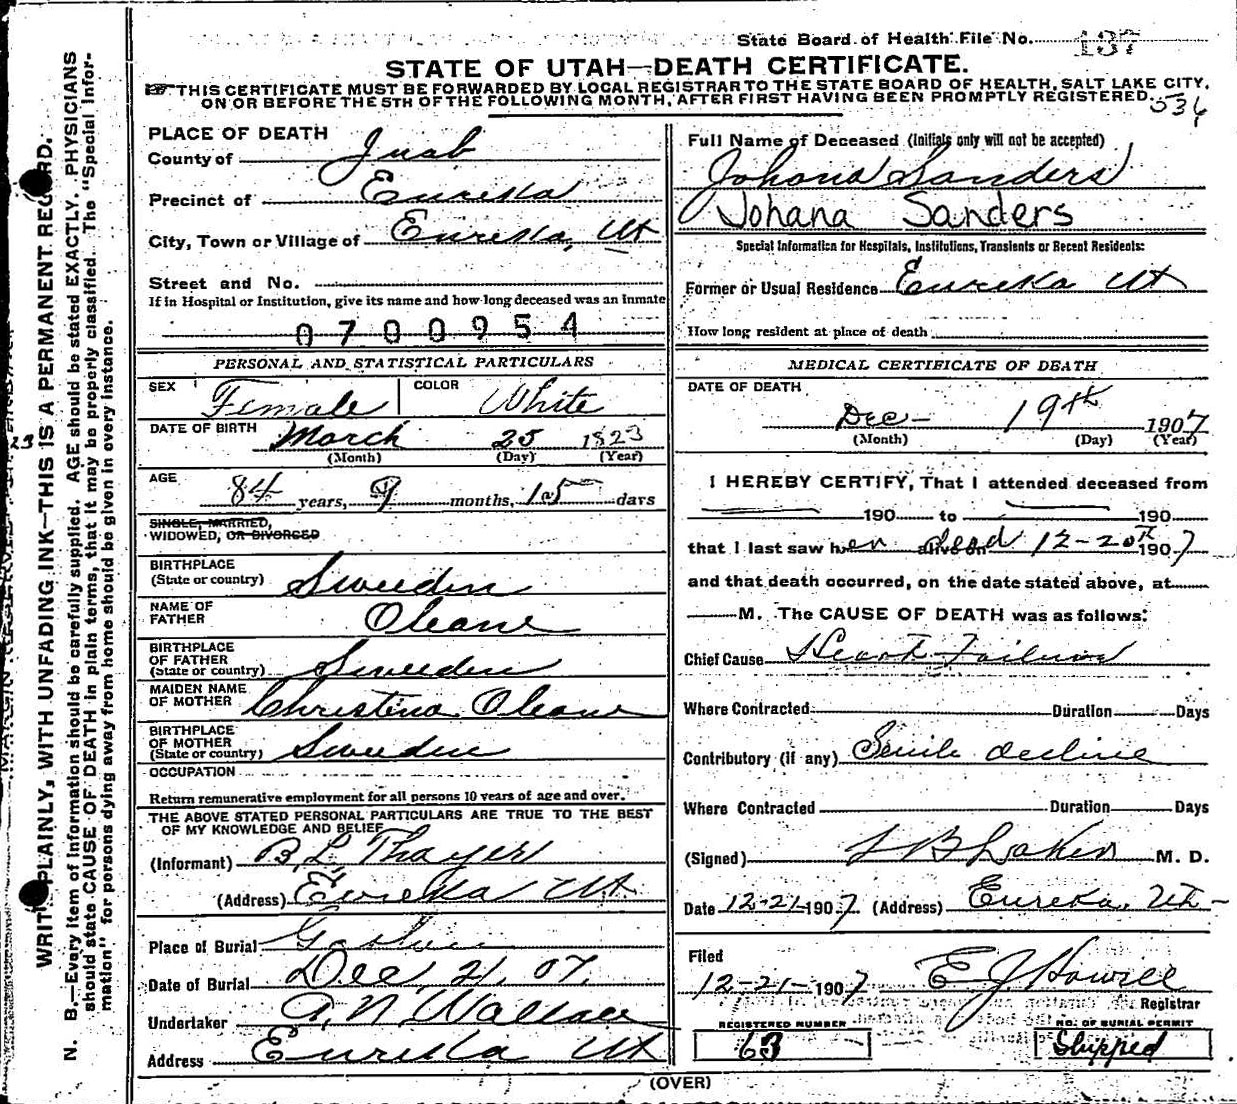 State Board of Health File No. 137
STATE OF UTAH—DEATH CERTIFICATE.
THIS CERTIFICATE MUST BE FORWARDED BY LOCAL REGISTRAR TO THE STATE BOARD OF HEALTH, SALT LAKE CITY,
ON OR BEFORE THE 5TH OF THE FOLLOWING MONTH, AFTER FIRST HAVING BEEN PROMPTLY REGISTERED.
536
PLACE OF DEATH
County of Juab
Precinct of Eureka
City, Town or Village of Eureka, Ut
Street and No.
If in Hospital or Institution, give its name and how long deceased was an inmate
0700954
PERSONAL AND STATISTICAL PARTICULARS
SEX Female COLOR White
DATE OF BIRTH March 25 1823
(Month) (Day) (Year)
AGE 84 years, 9 months, 15 days
SINGLE, MARRIED,
WIDOWED, OR DIVORCED
BIRTHPLACE
(State or country) Sweeden
NAME OF
FATHER Oleane
BIRTHPLACE
OF FATHER
(State or country) Sweeden
MAIDEN NAME
OF MOTHER Christena Oleane
BIRTHPLACE
OF MOTHER
(State or country) Sweeden
OCCUPATION
Return remunerative employment for all persons 10 years of age and over.
THE ABOVE STATED PERSONAL PARTICULARS ARE TRUE TO THE BEST
OF MY KNOWLEDGE AND BELIEF
(Informant) B L Thayer
(Address) Eureka Ut
Place of Burial
Date of Burial Dec, 21, 07,
Undertaker A. N. Wallace
Address Eureka Ut
Full Name of Deceased (Initials only will not be accepted)
Johana Sanders
Johana Sanders
Special Information for Hospitals, Institutions, Transients or Recent Residents:
Former or Usual Residence Eureka Ut
How long resident at place of death
MEDICAL CERTIFICATE OF DEATH
DATE OF DEATH
Dec— 19th 1907
(Month) (Day) (Year)
I HEREBY CERTIFY, That I attended deceased from
190 to 190
that I last saw her alive on dead 12-20th 1907
and that death occurred, on the date stated above, at
M. The CAUSE OF DEATH was as follows:
Chief Cause Heart Failure
Where Contracted Duration Days
Contributory (if any) Senile decline
Where Contracted Duration Days
(Signed) B Laker M. D.
Date 12-21-1907 (Address) Eureka, Ut—
Filed
12-21-1907 E J Howell
Registrar
REGISTERED NUMBER NO. OF BURIAL PERMIT
63 Shipped
(OVER)
WRITE PLAINLY, WITH UNFADING INK—THIS IS A PERMANENT RECORD.
N. B.—Every item of information should be carefully supplied. AGE should be stated EXACTLY. PHYSICIANS
should state CAUSE OF DEATH in plain terms, that it may be properly classified. The "Special Infor-
mation" for persons dying away from home should be given in every instance.